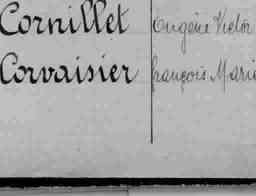 Cornillet Eugène Victor
Corvaisier François Marie